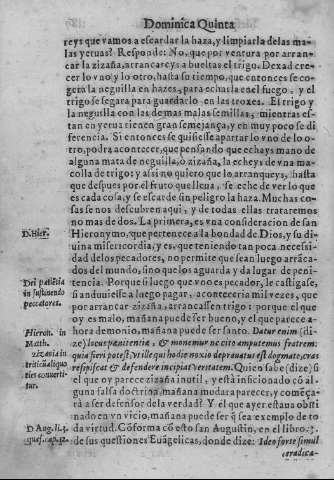 Dominica Quinta
reys que vamos a escardar la haza, y limpiarla delas ma-
las yeruas? Responde: No, que por ventura por arran-
car la zizaña, arrancareys a bueltas el trigo. Dexad cre-
cer lo vno y lo otro, hasta su tiempo, que entonces se co-
gera la neguilla en hazes, para echarla en el fuego, y el
trigo se segara para guardarlo en las troxes. El trigo y
la neguilla con las demas malas semillas, mientras es-
tan en yerua tienen gran semejança, y en muy poco se di
ferencia. Si entonces se quisiesse apartar lo vno de lo o-
tro, podra acontecer, que pensando que echays mano de
alguna mata de neguilla, o zizaña, la echeys de vna ma-
colla de trigo: y assi no quiero que lo arranqueys, hasta
que despues por el fruto que lleua, se eche de ver lo que
es cada cosa, y se escarde sin peligro la haza. Muchas co-
sas se nos descubren aqui, y de todas ellas trataremos
no mas de dos. La primera, es vna consideracion de san
D. Hier.
Hieronymo, que pertenece a la bondad de Dios, y su di-
uina misericordia, y es, que teniendo tan poca necessi-
dad delos pecadores, no permite que sean luego arrãca-
dos del mundo, sino que los aguarda y da lugar de peni-
Dei patiẽtia
in sustinendo
peccatores.
tencia. Porque si luego que vno es pecador, le castigasse,
si anduuiesse a luego pagar, aconteceria mil vezes, que
por arrancar zizaña, arrancassen trigo: porque el que
oy es malo, mañana puede ser bueno, y el que parece a-
Hieron. in
Matth.
hora demonio, mañana puede ser santo. Datur enim (di-
ze) locus pœnitentiæ, & monemur ne cito amputemus fratrem:
zizania in
triticũ aliquo
ties conuerti-
tur.
quia fieri potest, vt ille qui hodie noxio deprauatus est dogmate, cras
resipiscat & defendere incipiat veritatem. Quien sabe (dize) si
el que oy parece zizaña inutil, y està inficionado cõ al
guna falsa doctrina, mañana mudara parecer, y comẽça-
rà a ser defensor dela verdad? Y el que ayer estaua obsti
nado en vn vicio, mañana puede ser q̃ sea exemplo de to
D. Aug. li. q.
quæst. cap. 12.
da virtud. Cõforma cõ esto san Augustin, en el libro
de sus questiones Euãgelicas, donde dize: Ideo forte simul
eradica-